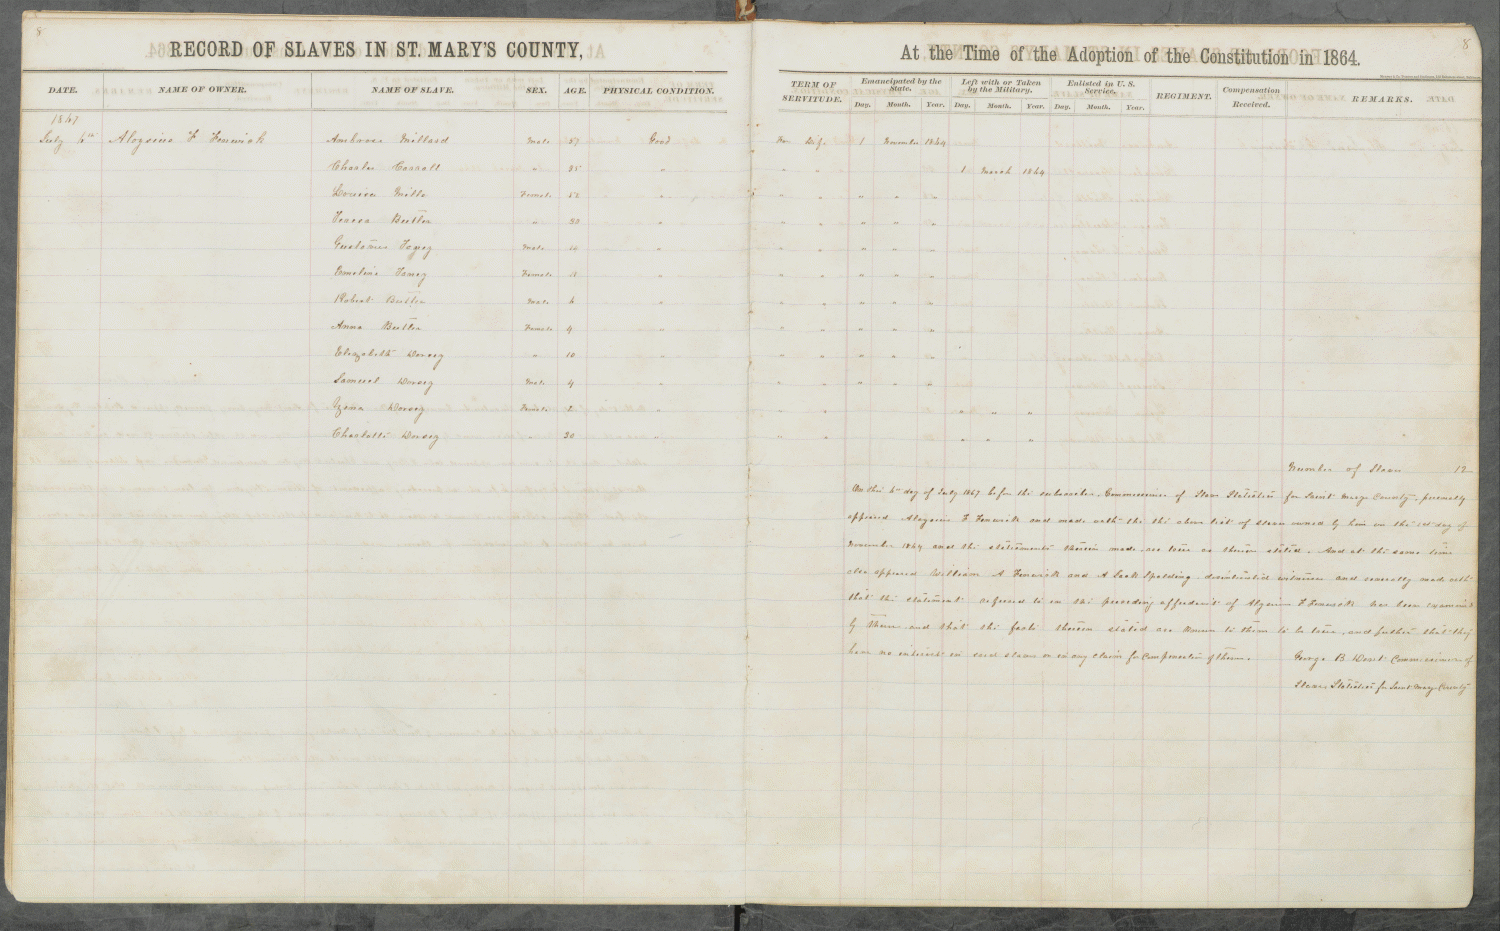 8
RECORD OF SLAVES IN ST. MARY'S COUNTY,
DATE. NAME OF OWNER. NAME OF SLAVE. SEX. AGE. PHYSICAL CONDITION.
1867
July 6th Aloysius F Fenwick Ambrose Millard Male 57 Good
Charles Carroll " 35 "
Louisa Mills Female 56 "
Teresa Butler " 30 "
Gustavus Toney Male "
Emeline Toney Female "
Robert Butler Male 6 "
Anna Butler Female 4 "
Elizabeth Dorsey " 10 "
Samuel Dorsey Male 4 "
Dorsey Female 2 "
Charlotte Dorsey " 30 "
8
At the Time of the Adoption of the Constitution in 1864.
TERM OF SERVITUDE. Emancipated by the State. Left with or Taken by the Military. Enlisted in U. S. Service. REGIMENT. Compensation Received. REMARKS.
Day. Month. Year. Day. Month. Year. Day. Month. Year.
For Life 1 November 1864
" " 1 March 1864
" " " " "
" " " " "
" " " " "
" " " " "
" " " " "
" " " " "
" " " " "
" " " " "
" " " " "
" " " " "
Number of Slaves 12
On this 6th day of July 1867 before the subscriber, Commissioner of Slave Statistics for Saint Marys County, personally
appeared Aloysius F Fenwick and made oath the the above list of slaves owned by him on the 1st day of
November 1864 and the statements therein made are true as therein stated. And at the same time
also appeared William A Fenwick and A Jack Spalding disinterested witnesses and severally made oath
that the statement referred to in the preceding affidavit of Aloysius F Fenwick has been examined
by them and that the facts therein stated are known to them to be true, and further that they
have no interest in said slaves or in any claim for Compensation of them. George B Dent Commissioner of
Slave Statistics for Saint Marys County